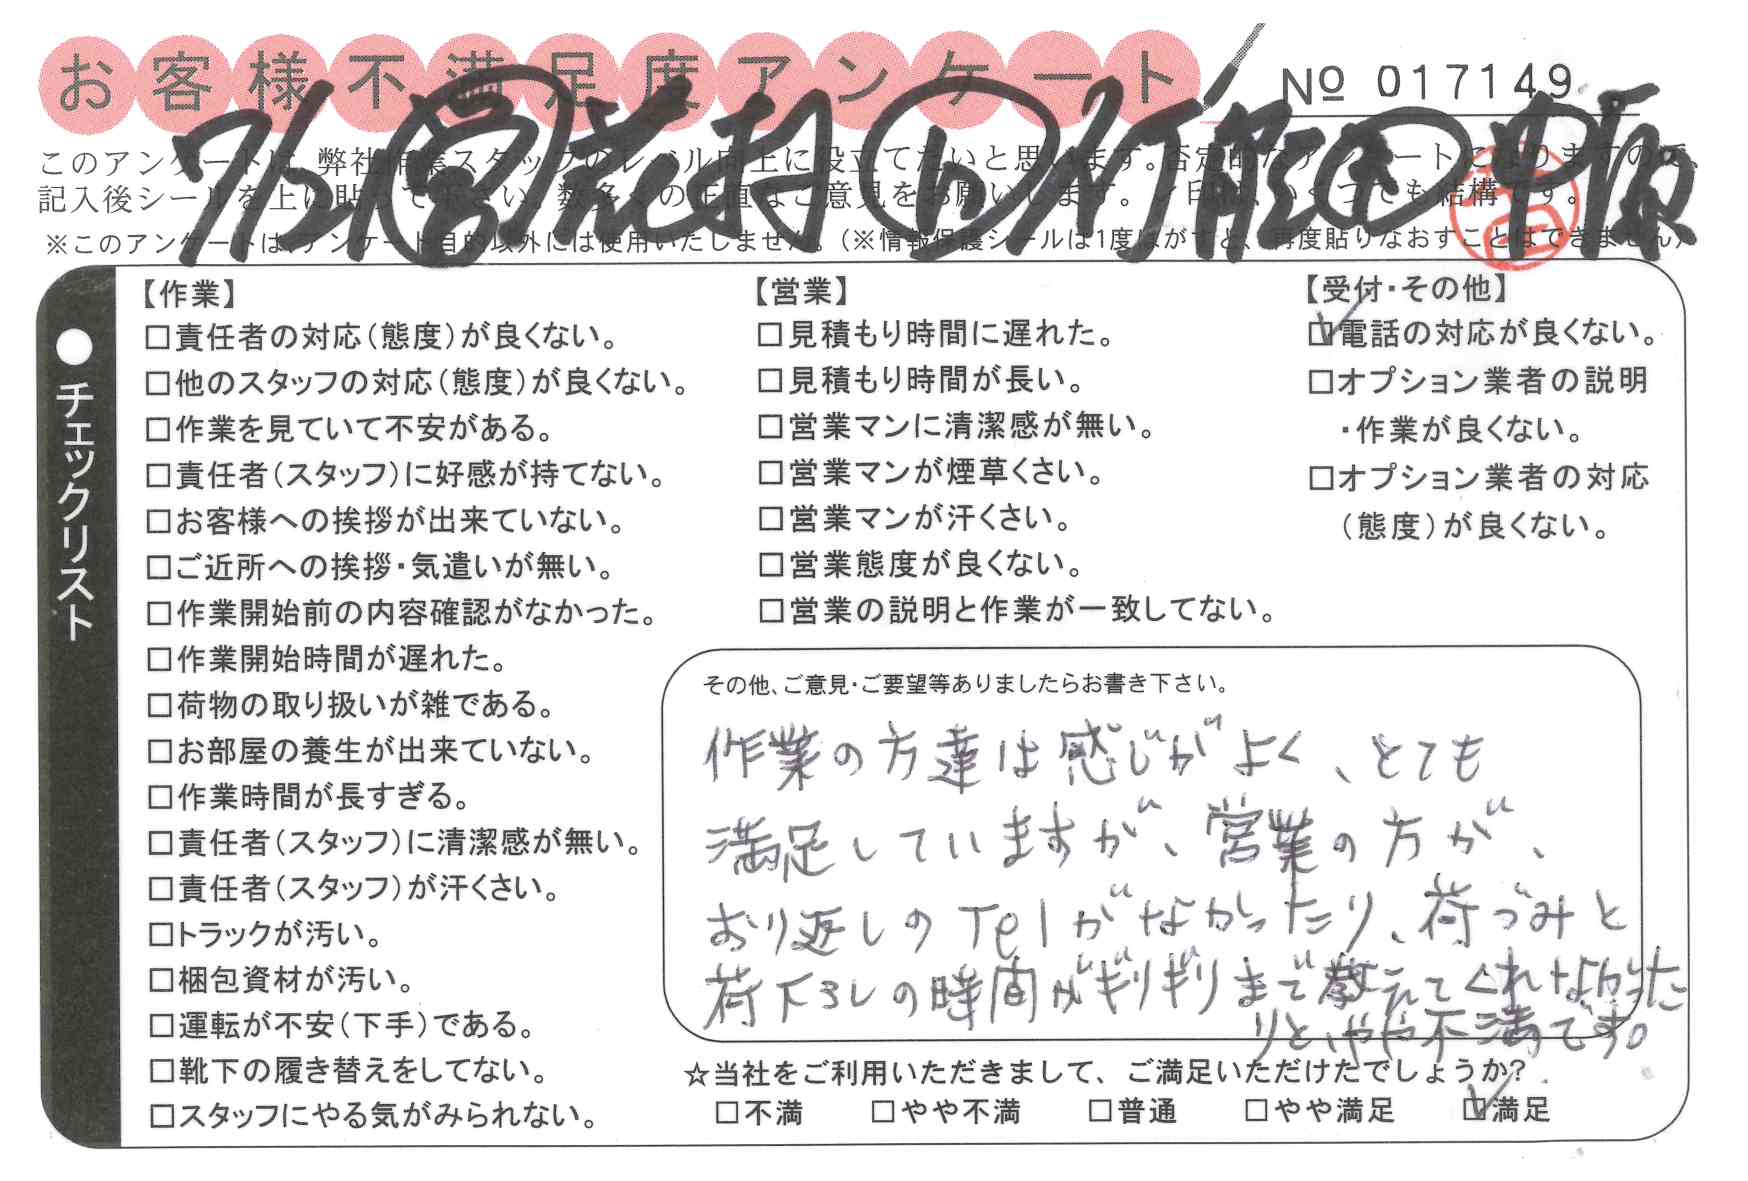 お客様不満足度アンケート
№ 017149
7/2 営 花村 上 竹龍 中原
このアンケートは、弊社作業スタッフのレベル向上に役立てたいと思います。否定的なアンケートになりますので、
記入後シールを上に貼って下さい。数多くの正直なご意見をお願いします。✓印は、いくつでも結構です。
※このアンケートは、アンケート目的以外には使用いたしません。（※情報保護シールは1度はがすと、再度貼りなおすことはできません）
●チェックリスト
【作業】
□責任者の対応（態度）が良くない。
□他のスタッフの対応（態度）が良くない。
□作業を見ていて不安がある。
□責任者（スタッフ）に好感が持てない。
□お客様への挨拶が出来ていない。
□ご近所への挨拶・気遣いが無い。
□作業開始前の内容確認がなかった。
□作業開始時間が遅れた。
□荷物の取り扱いが雑である。
□お部屋の養生が出来ていない。
□作業時間が長すぎる。
□責任者（スタッフ）に清潔感が無い。
□責任者（スタッフ）が汗くさい。
□トラックが汚い。
□梱包資材が汚い。
□運転が不安（下手）である。
□靴下の履き替えをしてない。
□スタッフにやる気がみられない。
【営業】
□見積もり時間に遅れた。
□見積もり時間が長い。
□営業マンに清潔感が無い。
□営業マンが煙草くさい。
□営業マンが汗くさい。
□営業態度が良くない。
□営業の説明と作業が一致してない。
【受付・その他】
☑電話の対応が良くない。
□オプション業者の説明
・作業が良くない。
□オプション業者の対応
（態度）が良くない。
その他、ご意見・ご要望等ありましたらお書き下さい。
作業の方達は感じがよく、とても
満足していますが、営業の方が、
おり返しのTelがなかったり、荷づみと
荷下ろしの時間がギリギリまで教えてくれなかった
りと、やや不満です。
☆当社をご利用いただきまして、ご満足いただけたでしょうか？
□不満 □やや不満 □普通 □やや満足 ☑満足